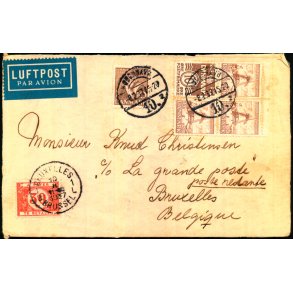 LUFTPOST
PAR AVION
Monsieur Knud Christensen
c/o La grande poste
poste restante
Bruxelles
Belgique
BRUXELLES
BRUSSEL